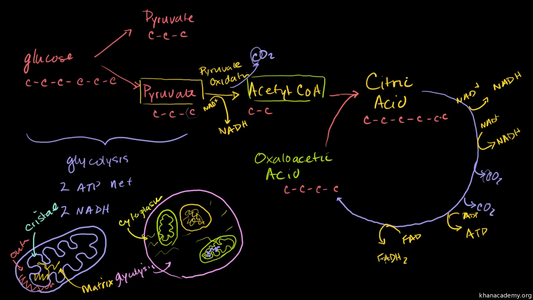 Pyruvate
C-C-C
glucose
C-C-C-C-C-C
Pyruvate
C-C-C
Pyruvate
Oxidation
CO2
NAD+
NADH
Acetyl CoA
C-C
Citric
Acid
C-C-C-C-C-C
NAD+
NADH
NAD+
NADH
CO2
CO2
ADP
ATP
FAD
FADH2
Oxaloacetic
Acid
C-C-C-C
glycolysis
2 ATP net
2 NADH
cristae
Matrix
cytoplasm
glycolysis
khanacademy.org